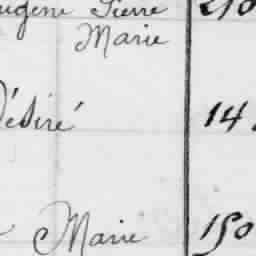 Eugène Pierre 210
Marie
Désiré 14
Marie 150